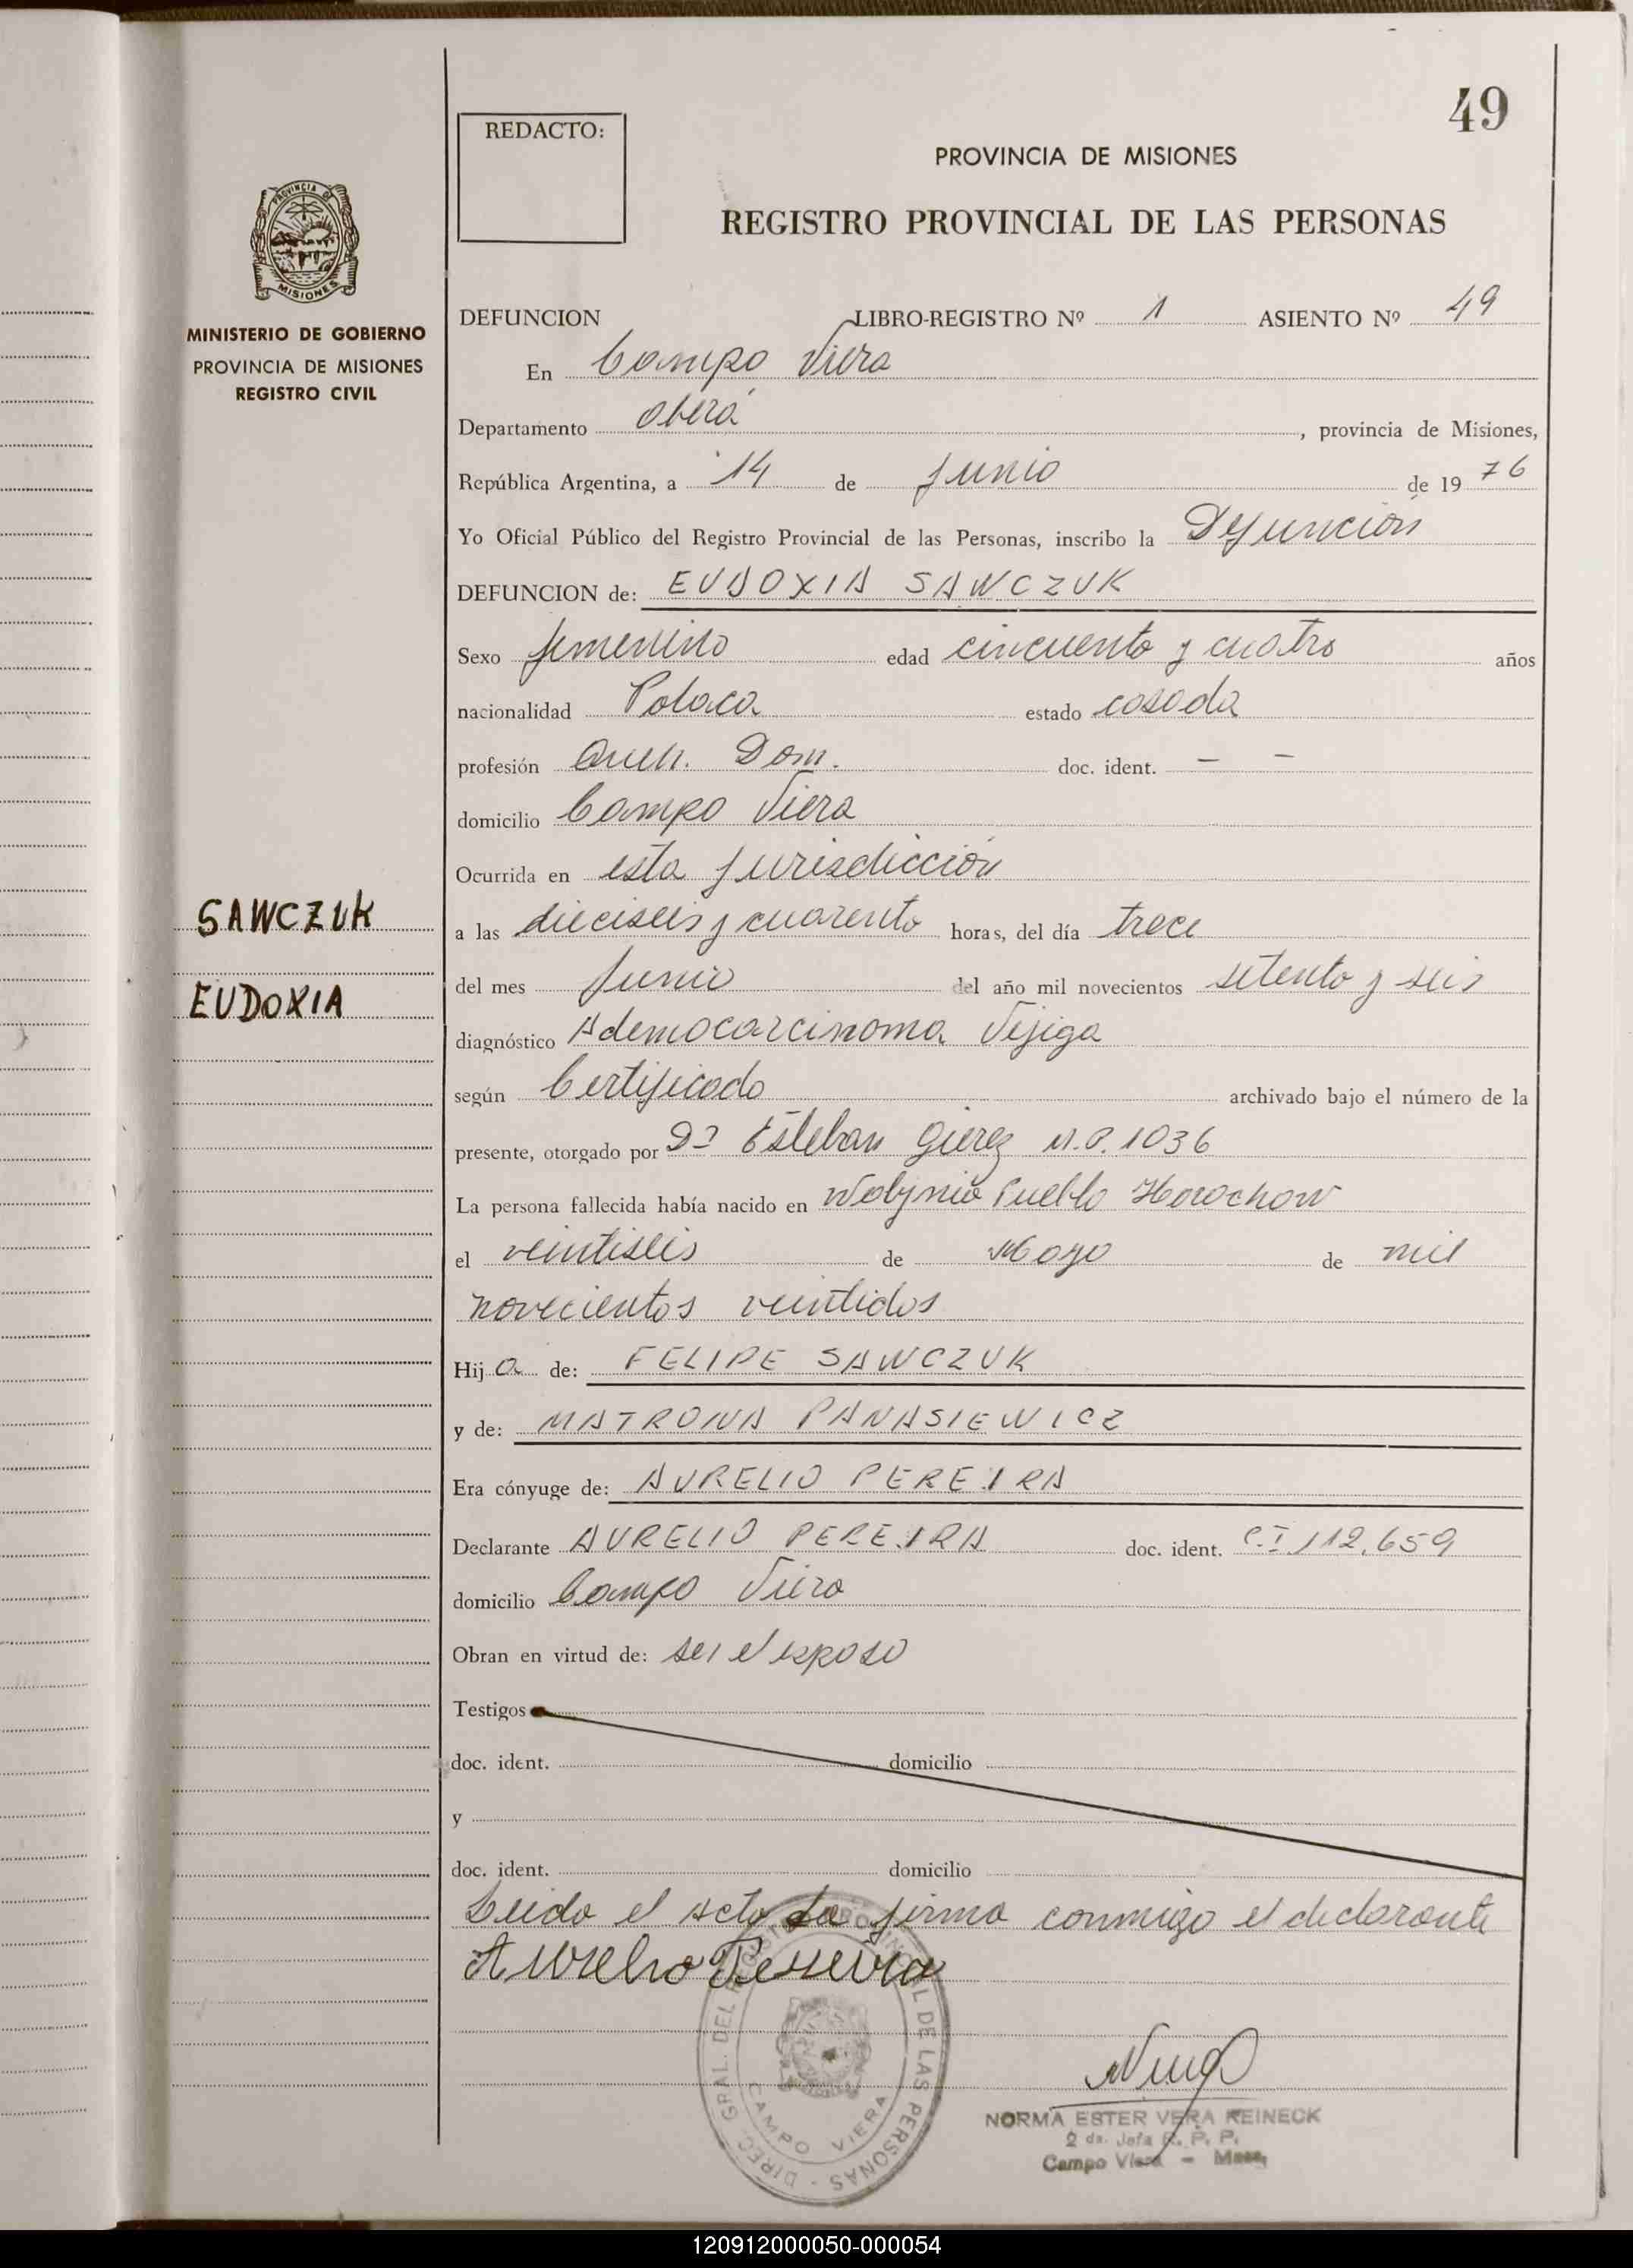 49
REDACTO:
PROVINCIA DE MISIONES
REGISTRO PROVINCIAL DE LAS PERSONAS
PROVINCIA DE
MISIONES
MINISTERIO DE GOBIERNO
PROVINCIA DE MISIONES
REGISTRO CIVIL
DEFUNCION LIBRO-REGISTRO Nº 1 ASIENTO Nº 49
En Campo Viera
Departamento Oberá, provincia de Misiones,
República Argentina, a 14 de Junio de 19 76
Yo Oficial Público del Registro Provincial de las Personas, inscribo la Defunción
DEFUNCION de: EUDOXIA SAWCZUK
Sexo femenino edad cincuenta y cuatro años
nacionalidad Polaca estado casada
profesión Queh. Dom. doc. ident. — —
domicilio Campo Viera
Ocurrida en esta Jurisdicción
SAWCZUK
EUDOXIA
a las dieciseis y cuarenta horas, del día trece
del mes Junio del año mil novecientos setenta y seis
diagnóstico Ademocarcinoma Vejiga
según Certificado archivado bajo el número de la
presente, otorgado por Dr Esteban Gierez M.P. 1036
La persona fallecida había nacido en Wolynia Pueblo Horochow
el veintiseis de Mayo de mil
novecientos veintidos
Hij a de: FELIPE SAWCZUK
y de: MATRONA PANASIEWICZ
Era cónyuge de: AURELIO PEREIRA
Declarante AURELIO PEREIRA doc. ident. C.I 112.659
domicilio Campo Viera
Obran en virtud de: ser el esposo
Testigos
doc. ident. domicilio
y
doc. ident. domicilio
Leida el acta la firma conmigo el declarante
Aurelio Pereira
DIREC. GRAL. DEL REGISTRO PROVINCIAL DE LAS PERSONAS
CAMPO VIERA
NORMA ESTER VERA REINECK
2 da. Jefa R. P. P.
Campo Viera - Mnes.
120912000050-000054